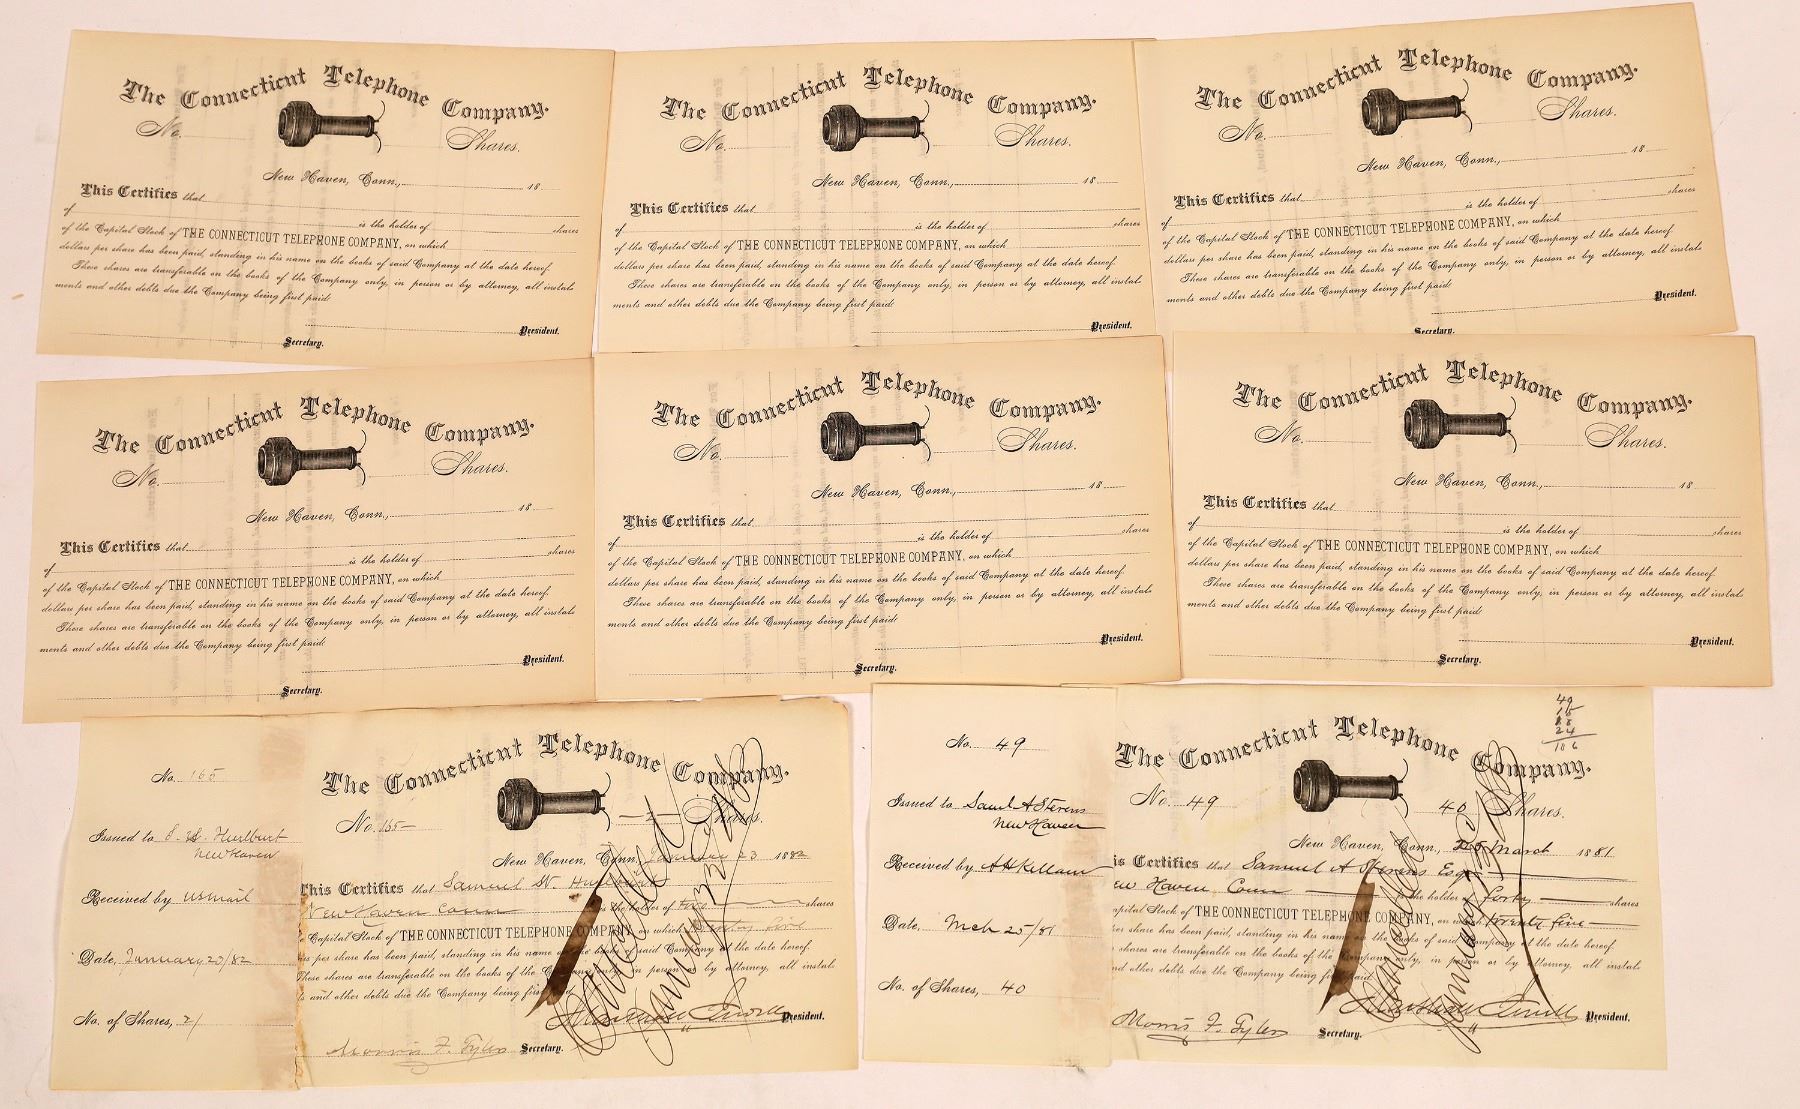 The Connecticut Telephone Company.
No. Shares.
New Haven, Conn., 18
This Certifies that
of is the holder of shares
of the Capital Stock of THE CONNECTICUT TELEPHONE COMPANY, on which
dollars per share has been paid, standing in his name on the books of said Company at the date hereof.
These shares are transferable on the books of the Company only, in person or by attorney, all instal-
ments and other debts due the Company being first paid.
President.
Secretary.
The Connecticut Telephone Company.
No. Shares.
New Haven, Conn., 18
This Certifies that
of is the holder of shares
of the Capital Stock of THE CONNECTICUT TELEPHONE COMPANY, on which
dollars per share has been paid, standing in his name on the books of said Company at the date hereof.
These shares are transferable on the books of the Company only, in person or by attorney, all instal-
ments and other debts due the Company being first paid.
President.
The Connecticut Telephone Company.
No. Shares.
New Haven, Conn., 18
This Certifies that
of is the holder of shares
of the Capital Stock of THE CONNECTICUT TELEPHONE COMPANY, on which
dollars per share has been paid, standing in his name on the books of said Company at the date hereof.
These shares are transferable on the books of the Company only, in person or by attorney, all instal-
ments and other debts due the Company being first paid.
President.
Secretary.
The Connecticut Telephone Company.
No. Shares.
New Haven, Conn., 18
This Certifies that
of is the holder of shares
of the Capital Stock of THE CONNECTICUT TELEPHONE COMPANY, on which
dollars per share has been paid, standing in his name on the books of said Company at the date hereof.
These shares are transferable on the books of the Company only, in person or by attorney, all instal-
ments and other debts due the Company being first paid.
President.
Secretary.
The Connecticut Telephone Company.
No. Shares.
New Haven, Conn., 18
This Certifies that
of is the holder of shares
of the Capital Stock of THE CONNECTICUT TELEPHONE COMPANY, on which
dollars per share has been paid, standing in his name on the books of said Company at the date hereof.
These shares are transferable on the books of the Company only, in person or by attorney, all instal-
ments and other debts due the Company being first paid.
President.
Secretary.
The Connecticut Telephone Company.
No. Shares.
New Haven, Conn., 18
This Certifies that
of is the holder of shares
of the Capital Stock of THE CONNECTICUT TELEPHONE COMPANY, on which
dollars per share has been paid, standing in his name on the books of said Company at the date hereof.
These shares are transferable on the books of the Company only, in person or by attorney, all instal-
ments and other debts due the Company being first paid.
President.
Secretary.
No. 165
Issued to Hurlbut
New Haven
Received by US mail
Date, January 20/82
No. of Shares, 2/
The Connecticut Telephone Company.
No. 165 2 Shares.
New Haven, Conn. January 1882
This Certifies that Samuel Hurlburt
New Haven Conn is the holder of two shares
Capital Stock of THE CONNECTICUT TELEPHONE COMPANY, on which twenty five
per share has been paid, standing in his name on the books of said Company at the date hereof.
These shares are transferable on the books of the Company only, in person or by attorney, all instal-
and other debts due the Company being first
Cancelled
January
President.
Morris F. Tyler Secretary.
No. 49
Issued to Saml A Stevens
New Haven
Received by
Date, Mch 25/81
No. of Shares, 40
49
24
106
The Connecticut Telephone Company.
No. 49 40 Shares.
New Haven, Conn., March 1881
This Certifies that Samuel A Stevens Esq
New Haven Conn is the holder of forty shares
Capital Stock of THE CONNECTICUT TELEPHONE COMPANY, on which twenty five
per share has been paid, standing in his name on the books of said Company at the date hereof.
shares are transferable on the books of the Company only, in person or by attorney, all instal-
and other debts due the Company being first paid
Cancelled
January
President.
Morris F. Tyler Secretary.